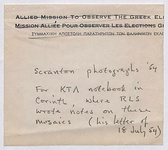 ALLIED MISSION TO OBSERVE THE GREEK EL
MISSION ALLIÉE POUR OBSERVER LES ELECTIONS G
ΣΥΜΜΑΧΙΚΗ ΑΠΟΣΤΟΛΗ ΠΑΡΑΤΗΡΗΤΩΝ ΤΩΝ ΕΛΛΗΝΙΚΩΝ ΕΚΛΟ
Scranton photographs '54
For KTA notebook in
Corinth where RLS
wrote notes on these
mosaics (his letter of
18 July 54)